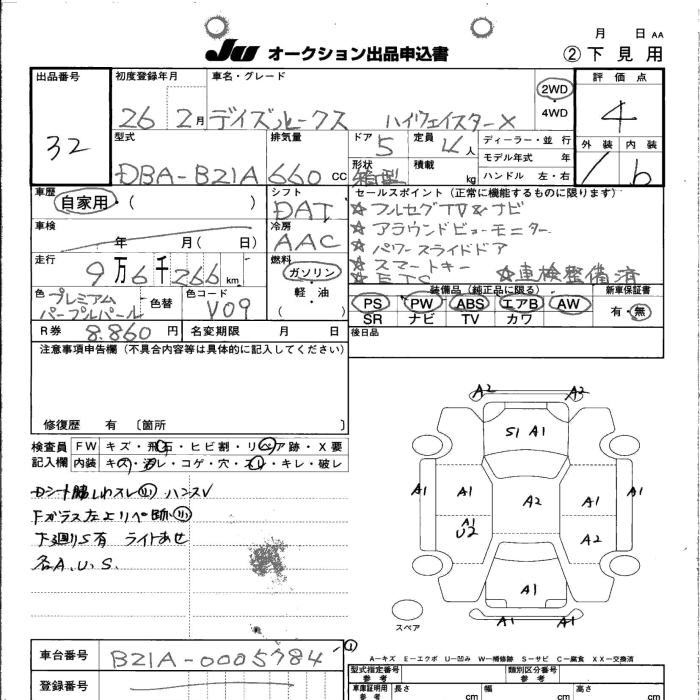 月 日 AA
JU オークション出品申込書
② 下見用
出品番号
32
初度登録年月
26 2月
車名・グレード
デイズルークス ハイウェイスターX
2WD
4WD
評価点
4
外装 内装
b
型式
DBA-B21A
排気量
660 CC
ドア
5
定員
4人
形状
箱型
積載
kg
ディーラー・並行
モデル年式 年
ハンドル 左・右
車歴
自家用・( )
シフト
DAT
セールスポイント(正常に機能するものに限ります)
☆フルセグTV&ナビ
☆アラウンドビューモニター
☆パワースライドドア
☆スマートキー
☆ETC ☆車検整備済
車検
年 月( 日)
冷房
AAC
走行
9万6千266 km
燃料
ガソリン
軽・油
( )
色
プレミアム
パープルパール
色替
色コード
V09
装備品(純正品に限る)
PS PW ABS エアB AW
SR ナビ TV カワ
新車保証書
有・無
R券 8.860 円
名変期限 月 日
後日品
注意事項申告欄(不具合内容等は具体的に記入してください)
修復歴 有 〔箇所 〕
検査員
記入欄
FW キズ・飛石・ヒビ割・リペア跡・X要
内装 キズ・汚レ・コゲ・穴・スレ・キレ・破レ
Dシート
ハンスレ
Fガラス左上リペ跡
下廻りS有 ライトあせ
各A.U.S.
A2 A2
S1 A1
A1 A1 A1 A1
A2
A1
U2
A2
A1
A1
スペア
A-キズ E-エクボ U-凹み W-補修跡 S-サビ C-腐食 XX-交換済
車台番号
B21A-0005784
登録番号
型式指定番号
参考
類別区分番号
参考
車庫証明用
参考
長さ cm
幅 cm
高さ cm